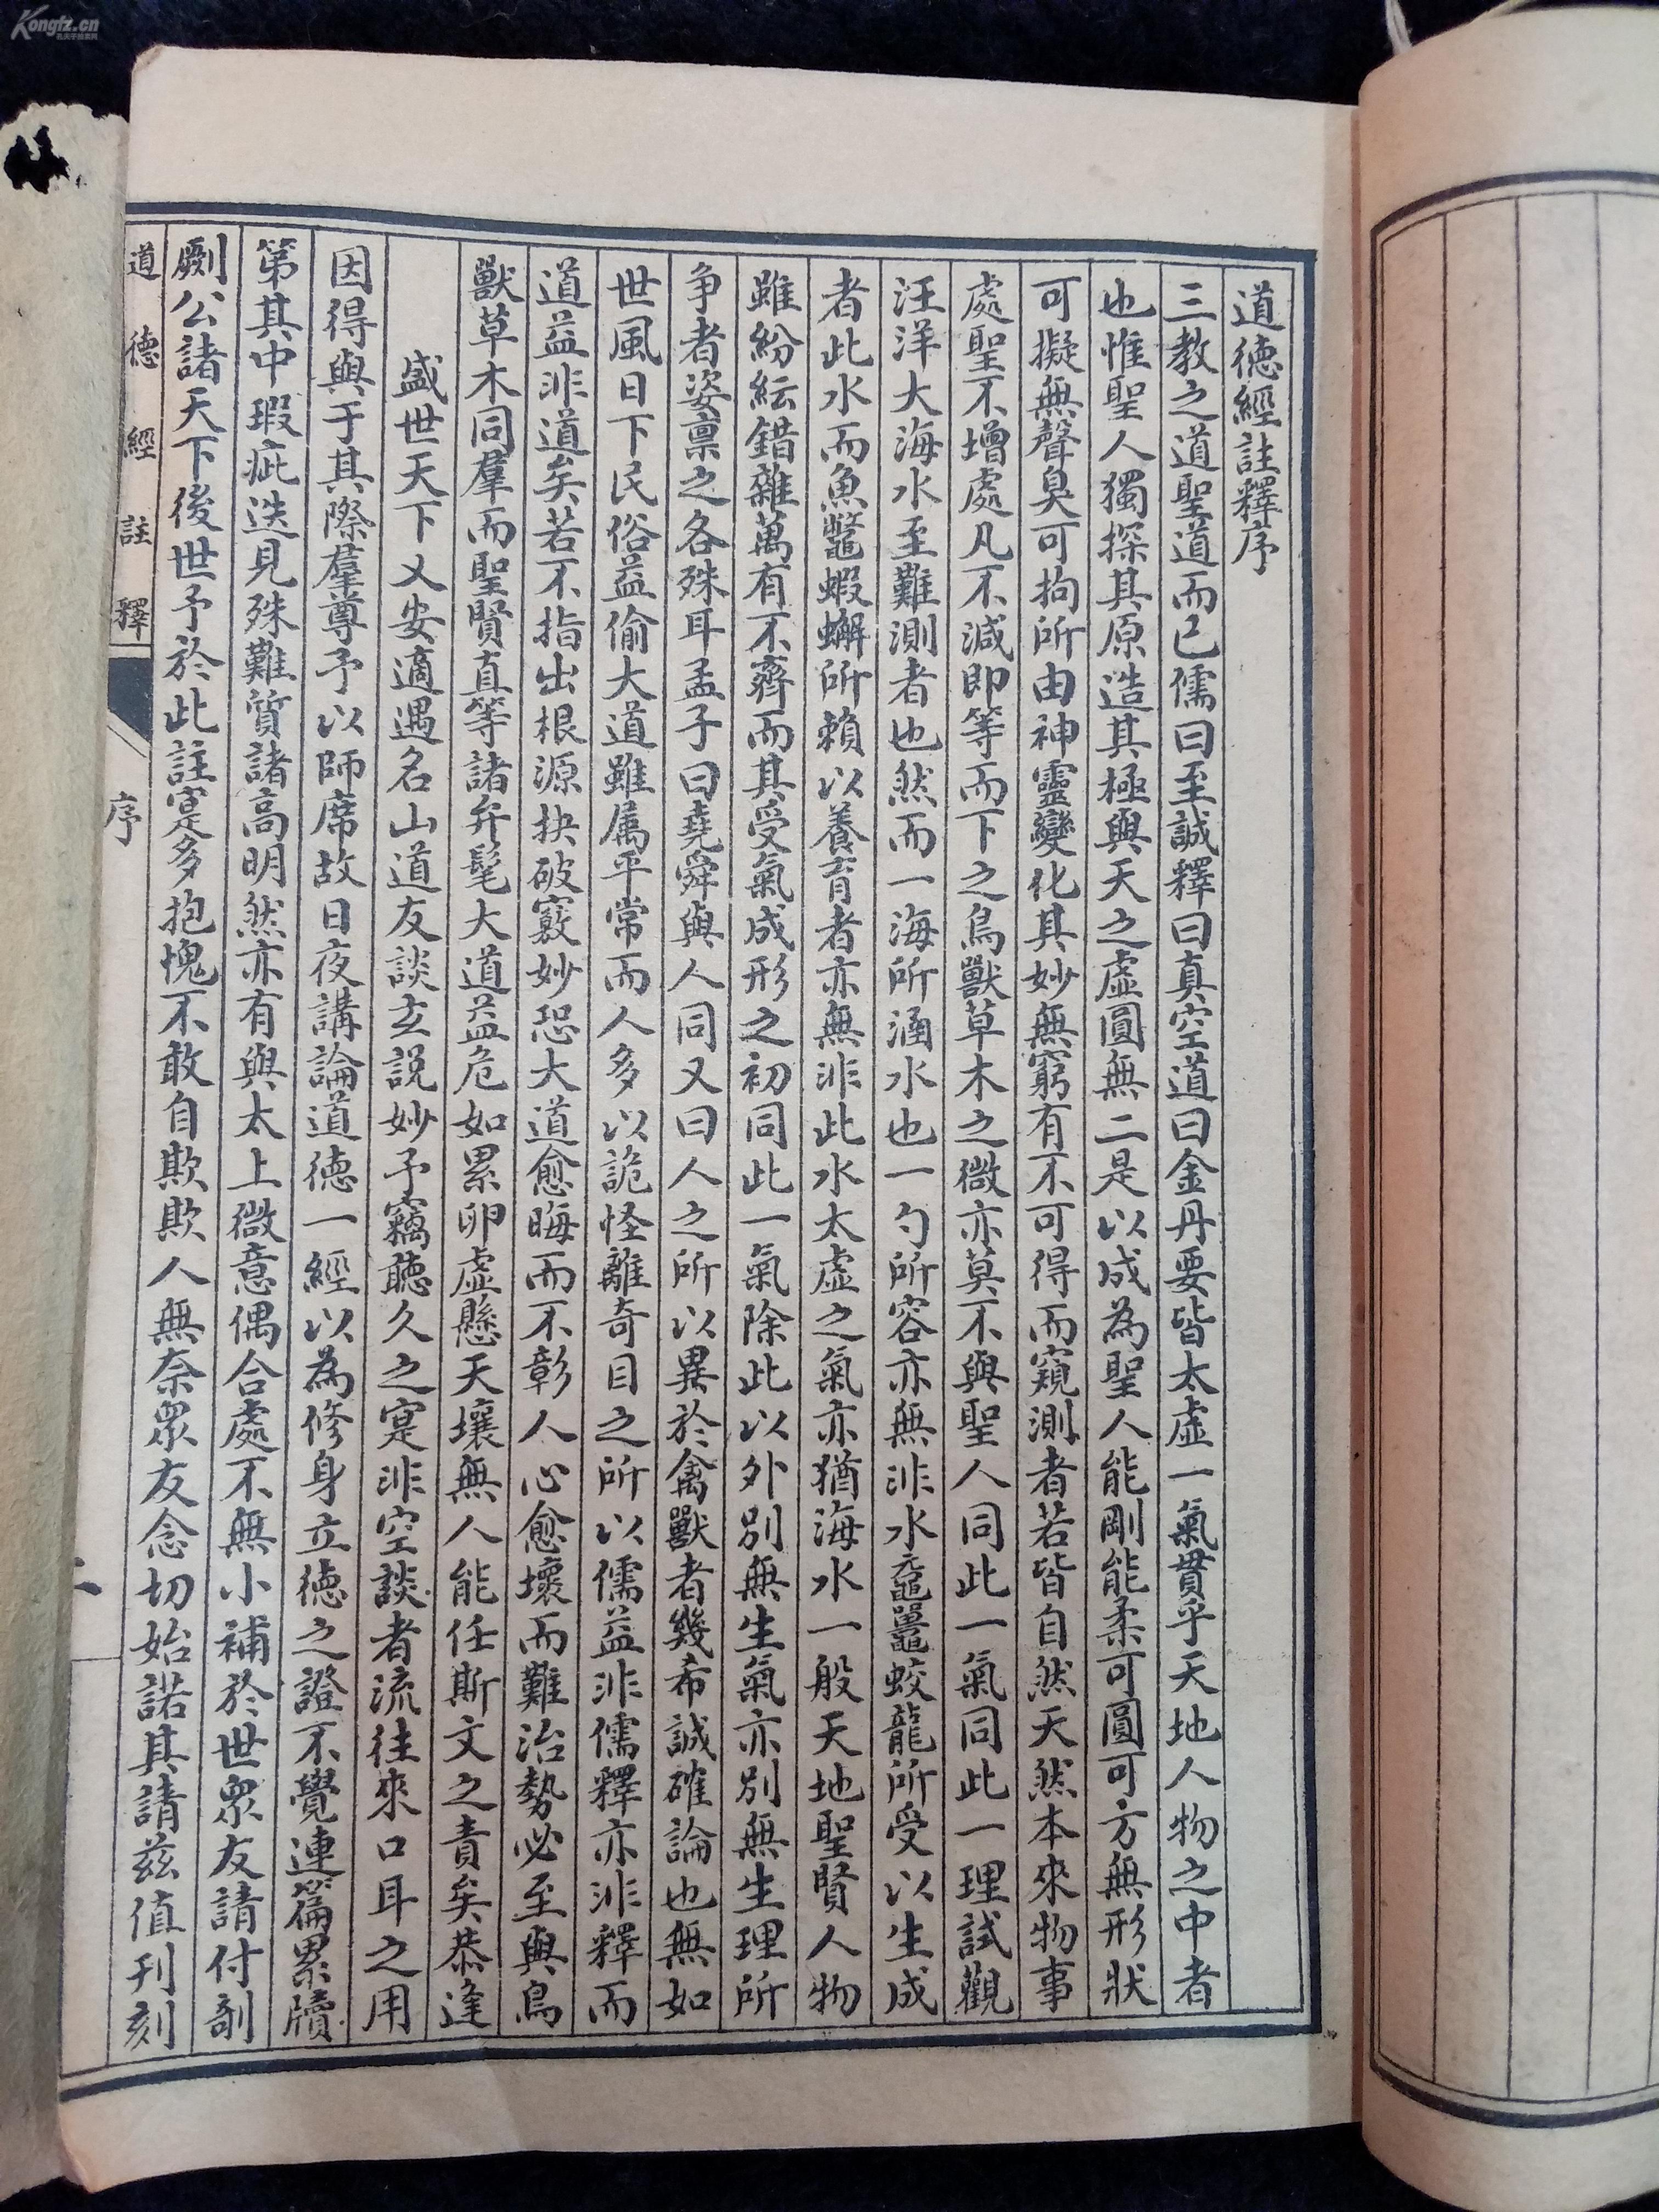 道德經註釋序
三教之道聖道而已儒曰至誠釋曰真空道曰金丹要皆太虛一氣貫乎天地人物之中者
也惟聖人獨探其原造其極與天之虛圓無二是以成為聖人能剛能柔可圓可方無形狀
可擬無聲臭可拘所由神靈變化其妙無窮有不可得而窺測者若皆自然天然本來物事
處聖不增處凡不減即等而下之鳥獸草木之微亦莫不與聖人同此一氣同此一理試觀
汪洋大海水至難測者也然而一海所涵水也一勺所容亦無非水黿鼉蛟龍所受以生成
者此水而魚鼈蝦蠏所賴以養育者亦無非此水太虛之氣亦猶海水一般天地聖賢人物
雖紛紜錯雜萬有不齊而其受氣成形之初同此一氣除此以外別無生氣亦別無生理所
爭者姿禀之各殊耳孟子曰堯舜與人同又曰人之所以異於禽獸者幾希誠確論也無如
世風日下民俗益偷大道雖属平常而人多以詭怪離奇目之所以儒益非儒釋亦非釋而
道益非道矣若不指出根源抉破竅妙恐大道愈晦而不彰人心愈壞而難治勢必至與鳥
獸草木同羣而聖賢直等諸弁髦大道益危如累卵虛懸天壤無人能任斯文之責矣恭逢
盛世天下乂安適遇名山道友談玄説妙予竊聽久之寔非空談者流徃來口耳之用
因得與于其際羣尊予以師席故日夜講論道德一經以為修身立德之證不覺連篇累牘
第其中瑕疵迭見殊難質諸高明然亦有與太上微意偶合處不無小補於世眾友請付剞
劂公諸天下後世予於此註寔多抱愧不敢自欺欺人無奈眾友念切始諾其請茲值刊刻
道德經註釋
序
一
Kongfz.cn